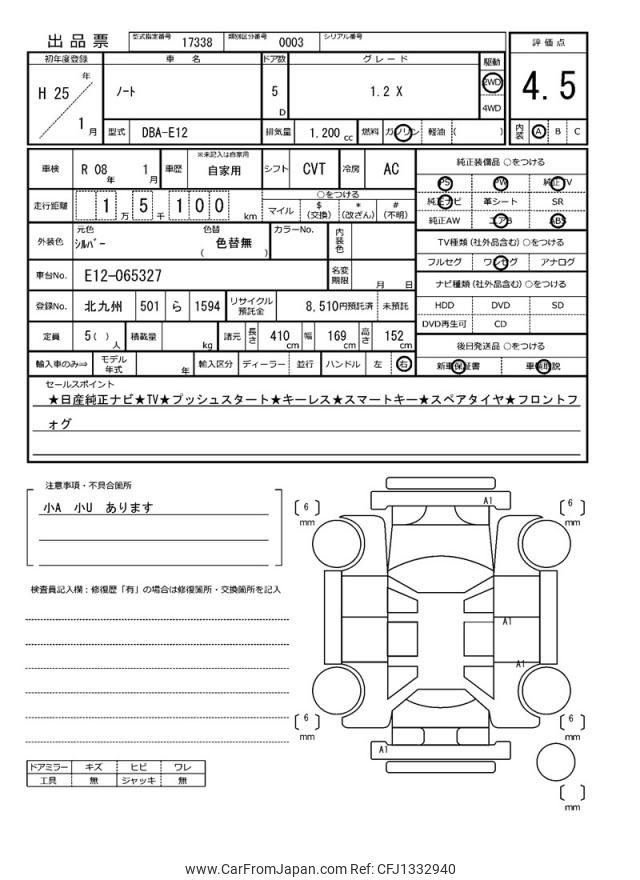 出品票 型式指定番号 17338 類別区分番号 0003 シリアル番号
初年度登録 車名 ドア数 グレード 駆動 評価点
H 25 年 1 月 ノート 5 D 1.2 X 2WD 4WD 4.5
型式 DBA-E12 排気量 1.200 cc 燃料 ガソリン 軽油 ( ) 内装 A B C
車検 R 08 年 1 月 車歴 ※未記入は自家用 自家用 シフト CVT 冷房 AC 純正装備品 ○をつける
PS PW 純正TV
走行距離 1 万 5 千 1 0 0 km ○をつける
マイル $ (交換) * (改ざん) # (不明)
純正ナビ 革シート SR
純正AW エアB ABS
外装色 元色 シルバー 色替 ( 色替無 ) カラーNo. 内装色
TV種類 (社外品含む) ○をつける
フルセグ ワンセグ アナログ
車台No. E12-065327 名変期限 月 日
ナビ種類 (社外品含む) ○をつける
登録No. 北九州 501 ら 1594 リサイクル預託金 8,510円預託済 未預託
HDD DVD SD
DVD再生可 CD
定員 5 ( ) 人 積載量 kg 諸元 長さ 410 cm 幅 169 cm 高さ 152 cm
後日発送品 ○をつける
輸入車のみ⇒ モデル年式 年 輸入区分 ディーラー 並行 ハンドル 左 右
新車保証書 車輌取説
セールスポイント
★日産純正ナビ★TV★プッシュスタート★キーレス★スマートキー★スペアタイヤ★フロントフ
ォグ
注意事項・不具合箇所
小A 小U あります
検査員記入欄:修復歴「有」の場合は修復箇所・交換箇所を記入
A1
[ 6 ] mm
[ 6 ] mm
A1
A1
[ 6 ] mm
[ 6 ] mm
A1
[ ] mm
ドアミラー キズ ヒビ ワレ
工具 無 ジャッキ 無
www.CarFromJapan.com Ref: CFJ1332940